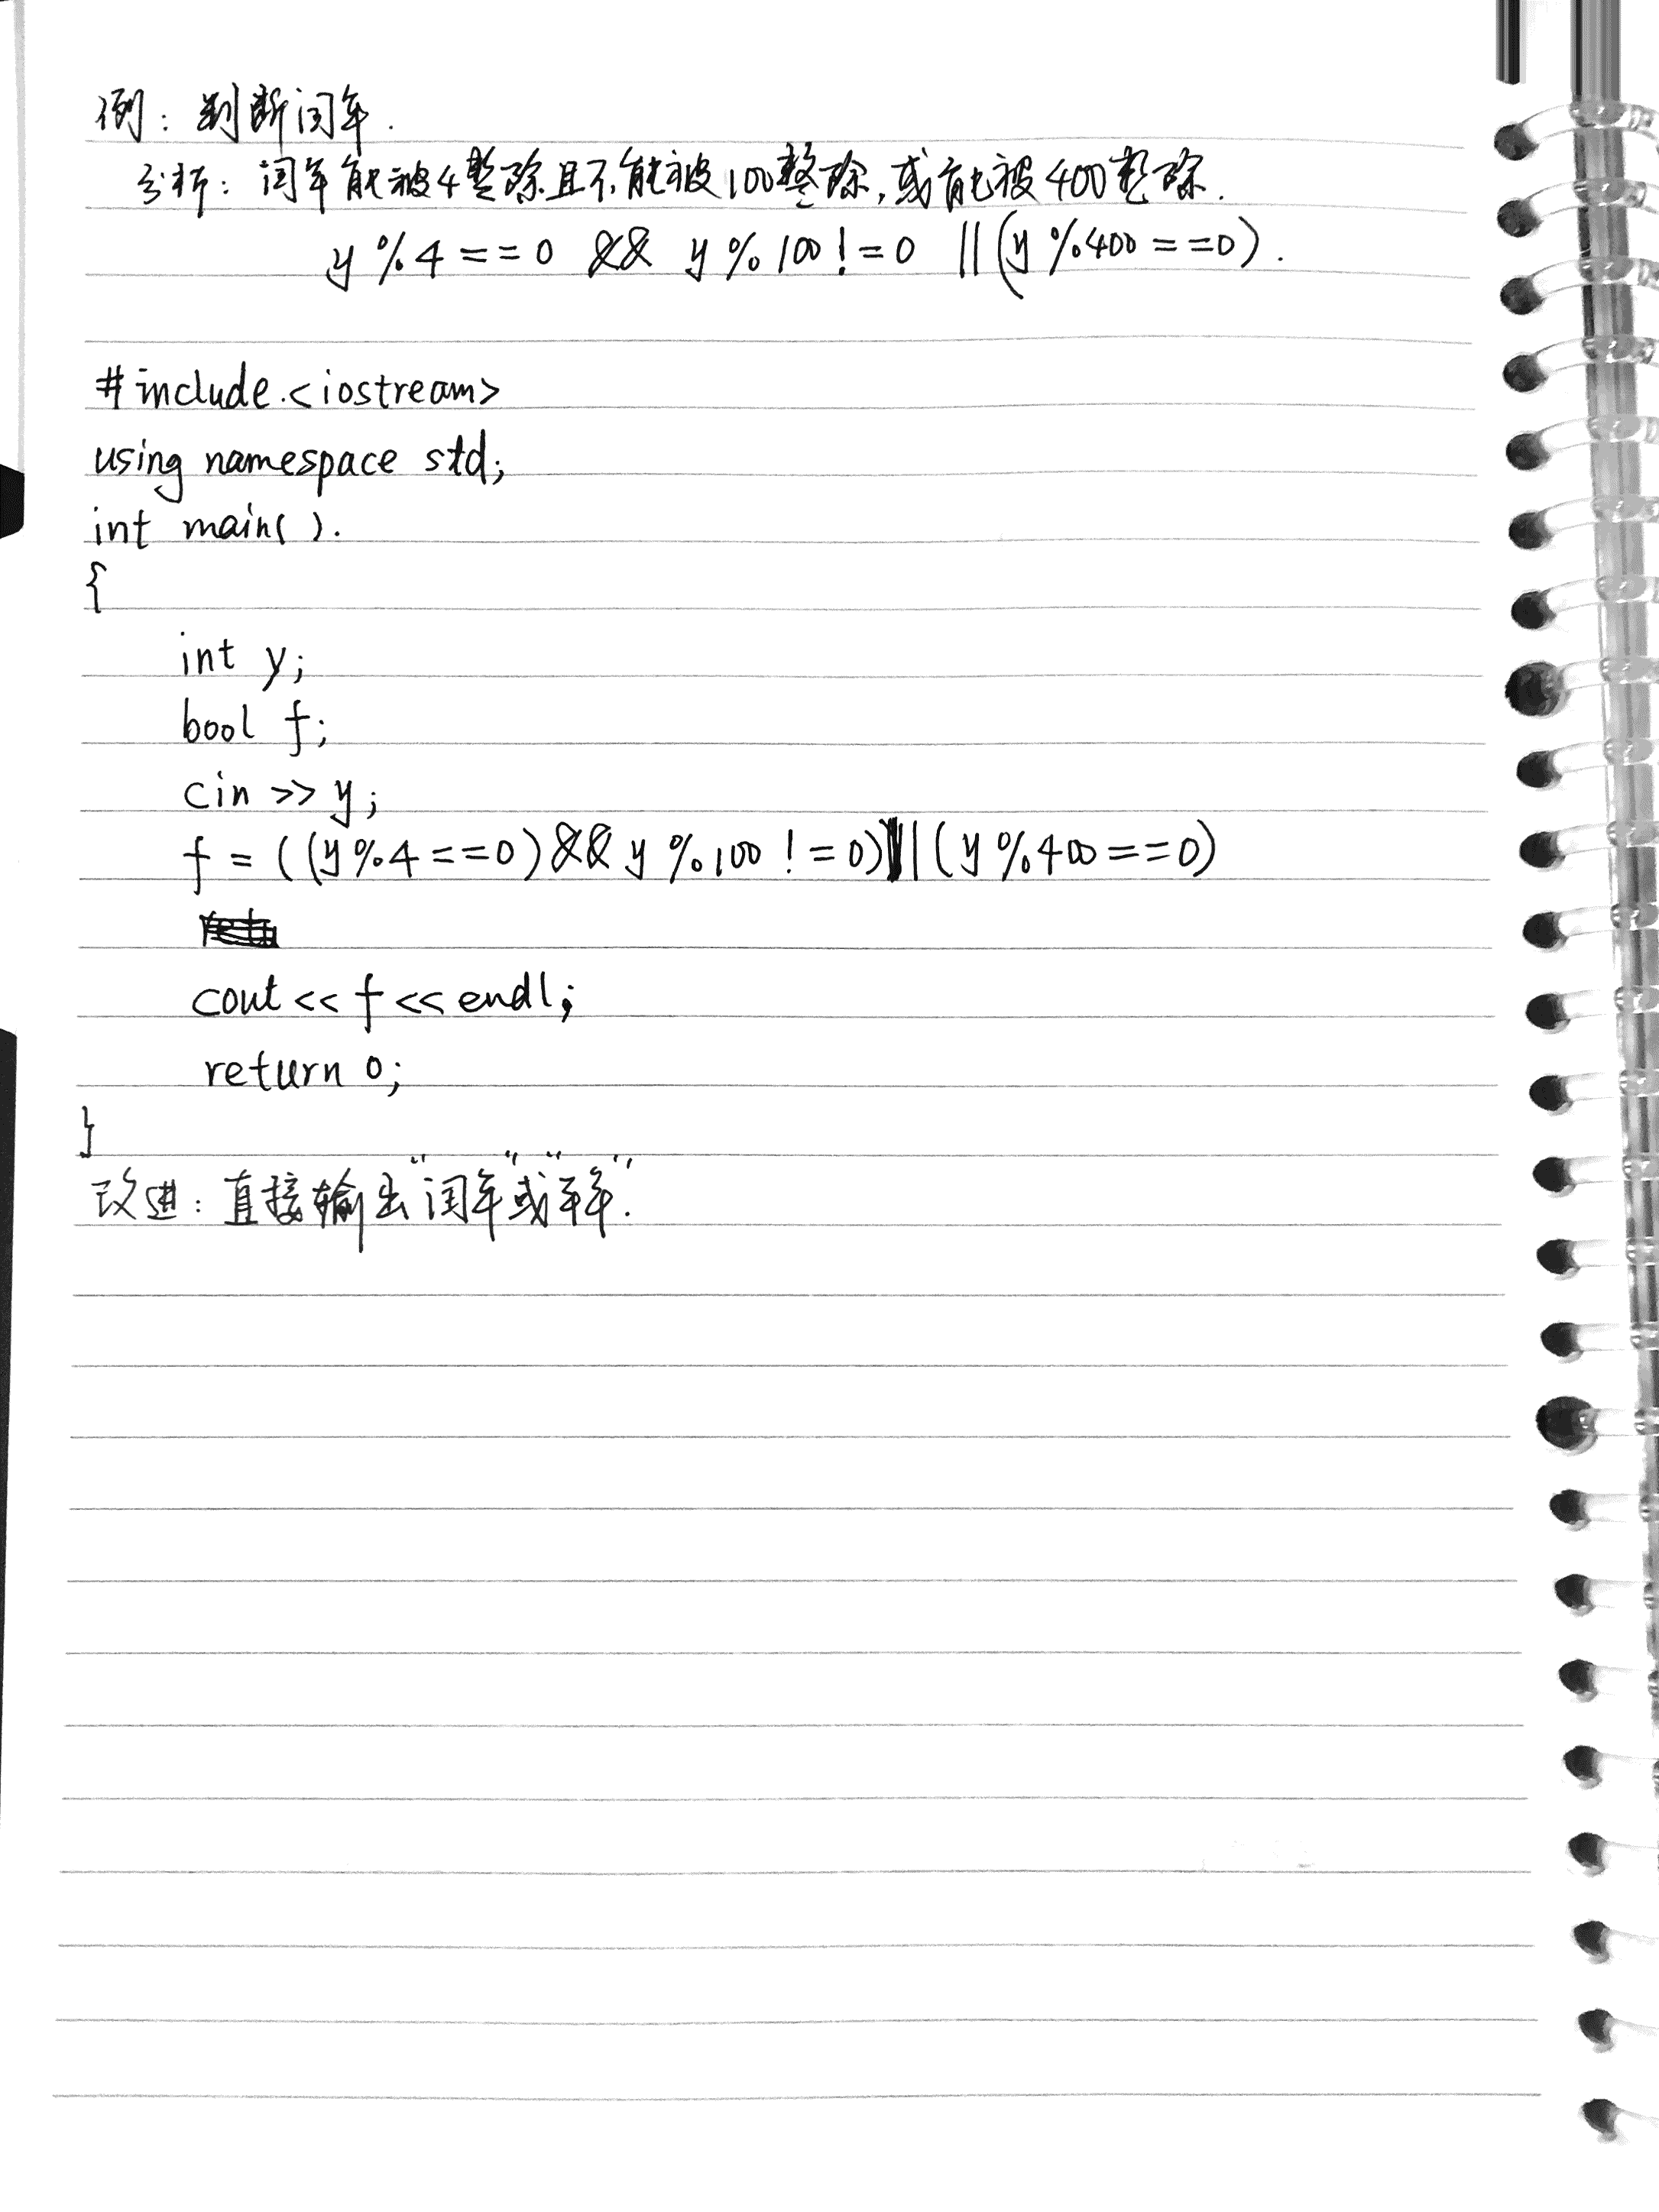 例：判断闰年.
分析：闰年能被4整除且不能被100整除,或能被400整除.
y%4==0 && y%100!=0 ||(y%400==0).
#include.<iostream>
using namespace std;
int main( ).
{
int y;
bool f;
cin >> y;
f = ((y%4==0)&&y%100!=0)||(y%400==0)
cout << f << endl;
return 0;
}
改进：直接输出"闰年"或"平年".